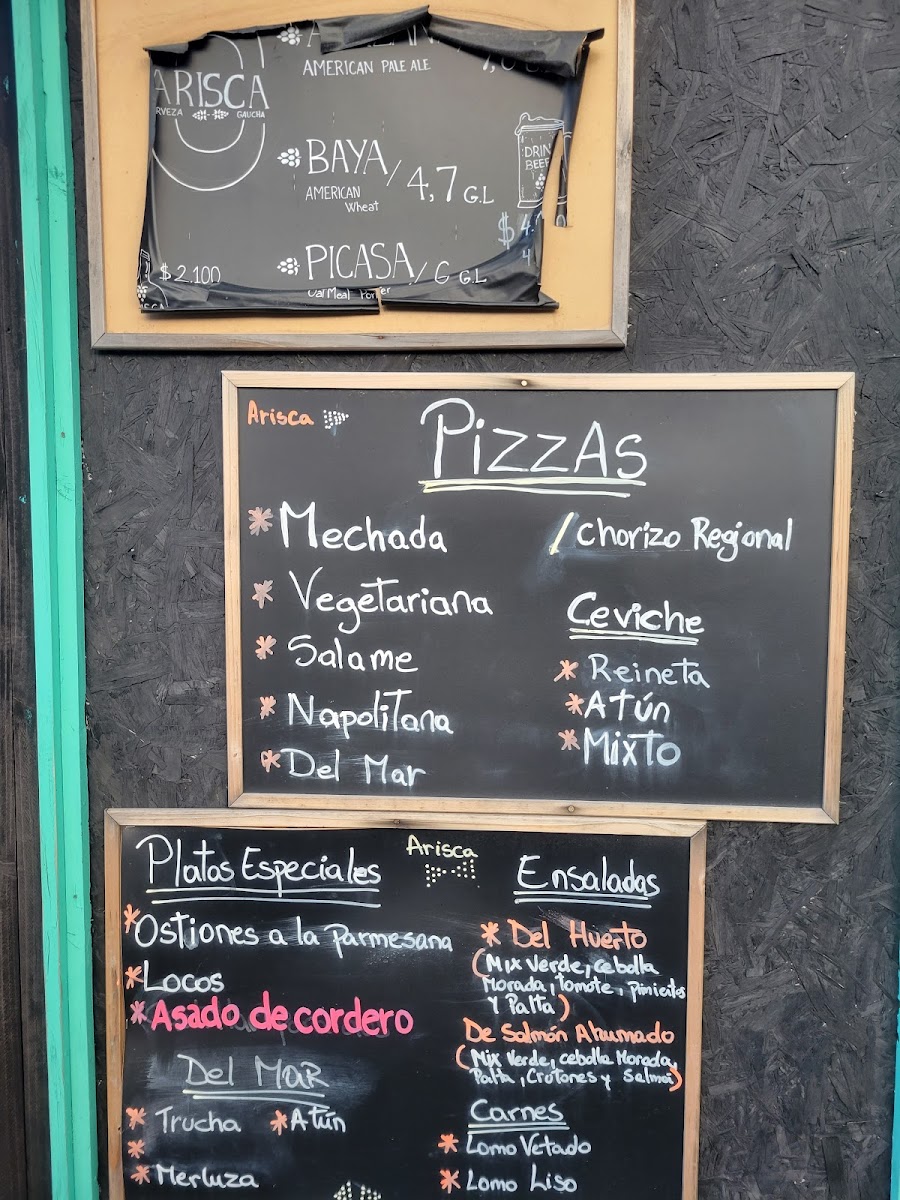 ARISCA
GAUCHA
AMERICAN PALE ALE
BAYA / 4,7 G.L
AMERICAN
Wheat
$ 2.100
PICASA / 6 GL
OatMeal Porter
BEER
Arisca
PizzAs
* Mechada
/ Chorizo Regional
* Vegetariana
* Salame
* Napolitana
* Del Mar
Ceviche
* Reineta
* Atún
* Mixto
Arisca
Platos Especiales
* Ostiones a la parmesana
* Locos
* Asado de cordero
Del Mar
* Trucha * Atún
*
* Merluza
Ensaladas
* Del Huerto
(Mix Verde, cebolla
Morada, tomate, pimientos
Y Palta)
De Salmón Ahumado
(Mix Verde, cebolla Morada,
Palta, Crutones y Salmón)
Carnes
* Lomo Vetado
* Lomo Liso